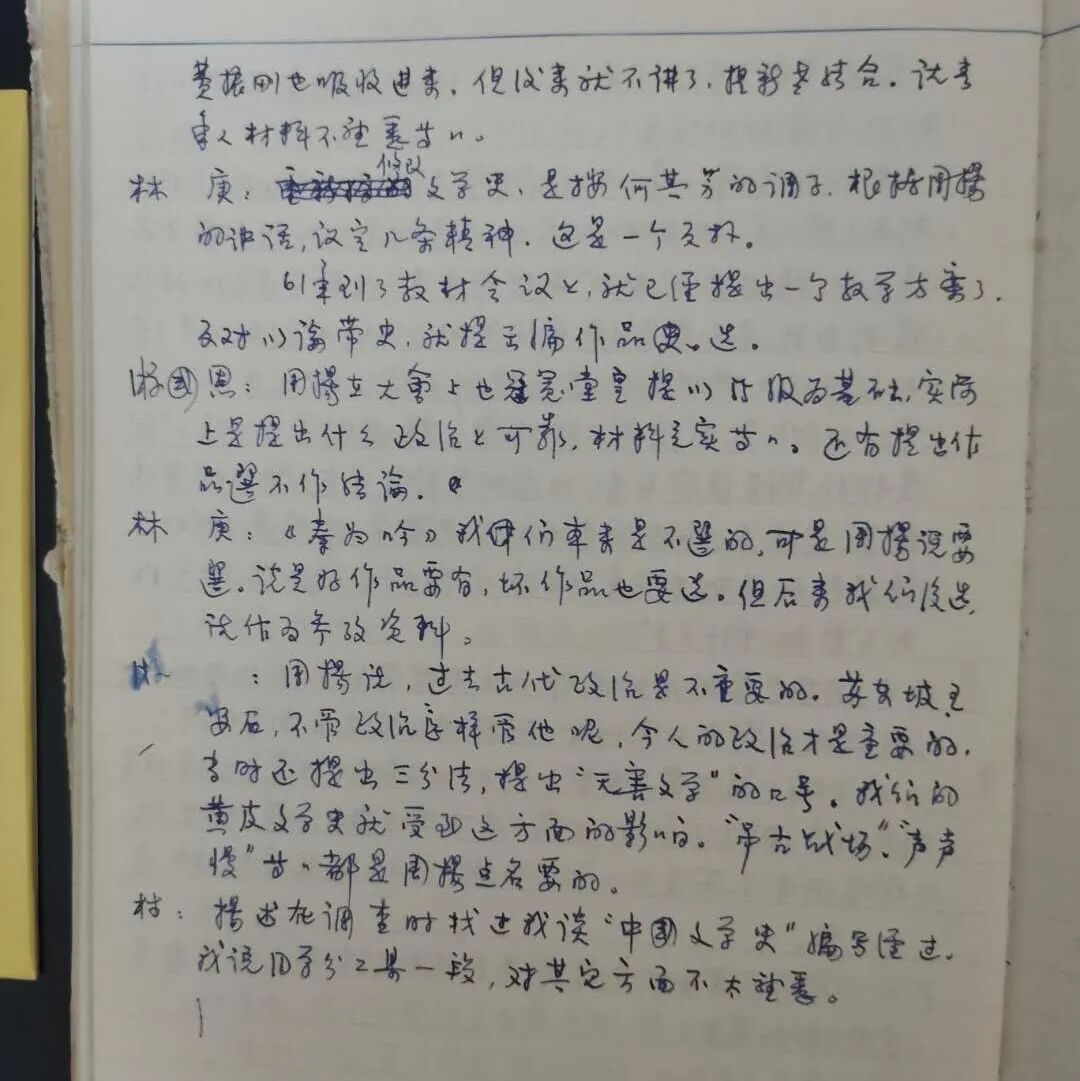 黄振刚也吸收进来。但后来就不讲了，提新老结合。说青
年人材料不注意等等。
林 庚：修改文学史，是按何其芳的调子，根据周扬
的讲话，议定几条精神。这是一个文坏。
61年到了教材会议上，就已经提出一个教学方案了。
反对以论带史，就提出编作品选。
游國恩：周揚在大会上也冠冕堂皇提以阶级为基础，实际
上是提出什么政治上可靠，材料充实等等。还有提出作
品選不作结论。
林 庚：《秦妇吟》我们本来是不選的，可是周揚说要
選。说是好作品要有，坏作品也要选。但后来我们没选，
说作为参考资料。
：周揚说，过去古代政治是不重要的。苏东坡、王
安石，不管政治怎样管他呢，今人的政治才是重要的，
当时还提出三分法，提出“无害文学”的口号。我们的
黄皮文学史就受到这方面的影响。“吊古战场”、“声声
慢”等等都是周揚点名要的。
揚述在调查时找过我谈“中國文学史”编写经过。
我说旧分工某一段，对其它方面不太注意。